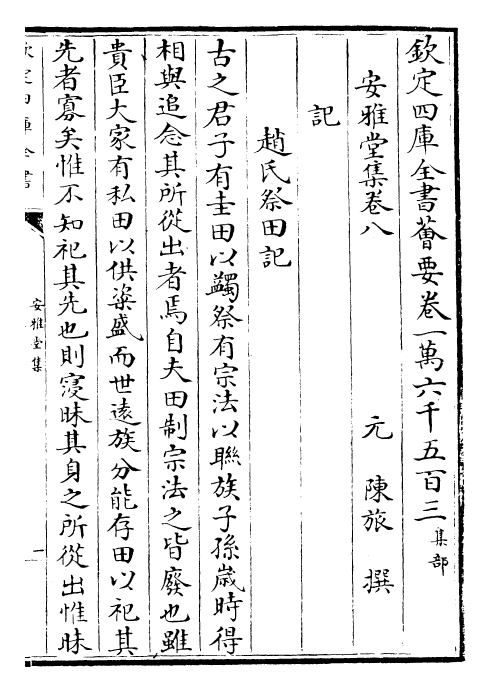 欽定四庫全書薈要卷一萬六千五百三集部
安雅堂集卷八
元 陳旅 撰
記
趙氏祭田記
古之君子有圭田以蠲祭有宗法以聯族子孫歲時得
相與追念其所從出者焉自夫田制宗法之皆廢也雖
貴臣大家有私田以供粢盛而世遠族分能存田以祀其
先者寡矣惟不知祀其先也則寖昧其身之所從出惟昧
欽定四庫全書
安雅堂集
一